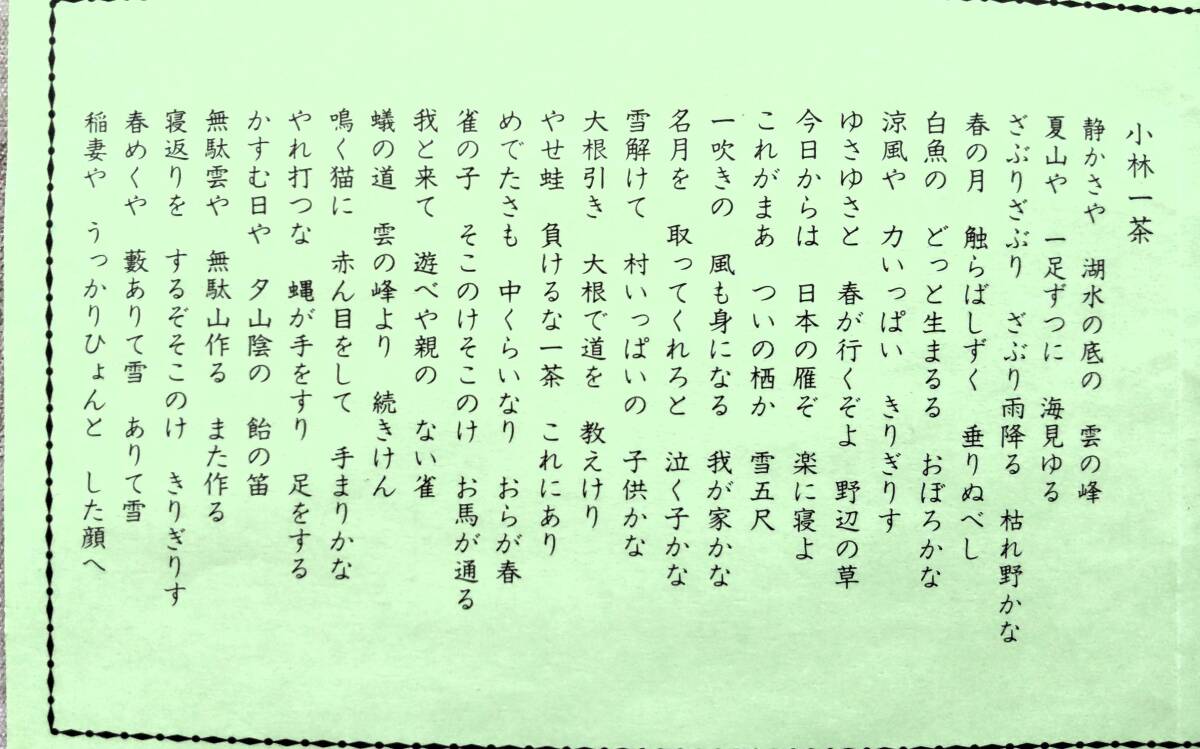 小林一茶
静かさや　湖水の底の　雲の峰
夏山や　一足ずつに　海見ゆる
ざぶりざぶり　ざぶり雨降る　枯れ野かな
春の月　触らばしずく　垂りぬべし
白魚の　どっと生まるる　おぼろかな
涼風や　力いっぱい　きりぎりす
ゆさゆさと　春が行くぞよ　野辺の草
今日からは　日本の雁ぞ　楽に寝よ
これがまあ　ついの栖か　雪五尺
一吹きの　風も身になる　我が家かな
名月を　取ってくれろと　泣く子かな
雪解けて　村いっぱいの　子供かな
大根引き　大根で道を　教えけり
やせ蛙　負けるな一茶　これにあり
めでたさも　中くらいなり　おらが春
雀の子　そこのけそこのけ　お馬が通る
我と来て　遊べや親の　ない雀
蟻の道　雲の峰より　続きけん
鳴く猫に　赤ん目をして　手まりかな
やれ打つな　蝿が手をすり　足をする
かすむ日や　夕山陰の　飴の笛
無駄雲や　無駄山作る　また作る
寝返りを　するぞそこのけ　きりぎりす
春めくや　藪ありて雪　ありて雪
稲妻や　うっかりひょんと　した顔へ